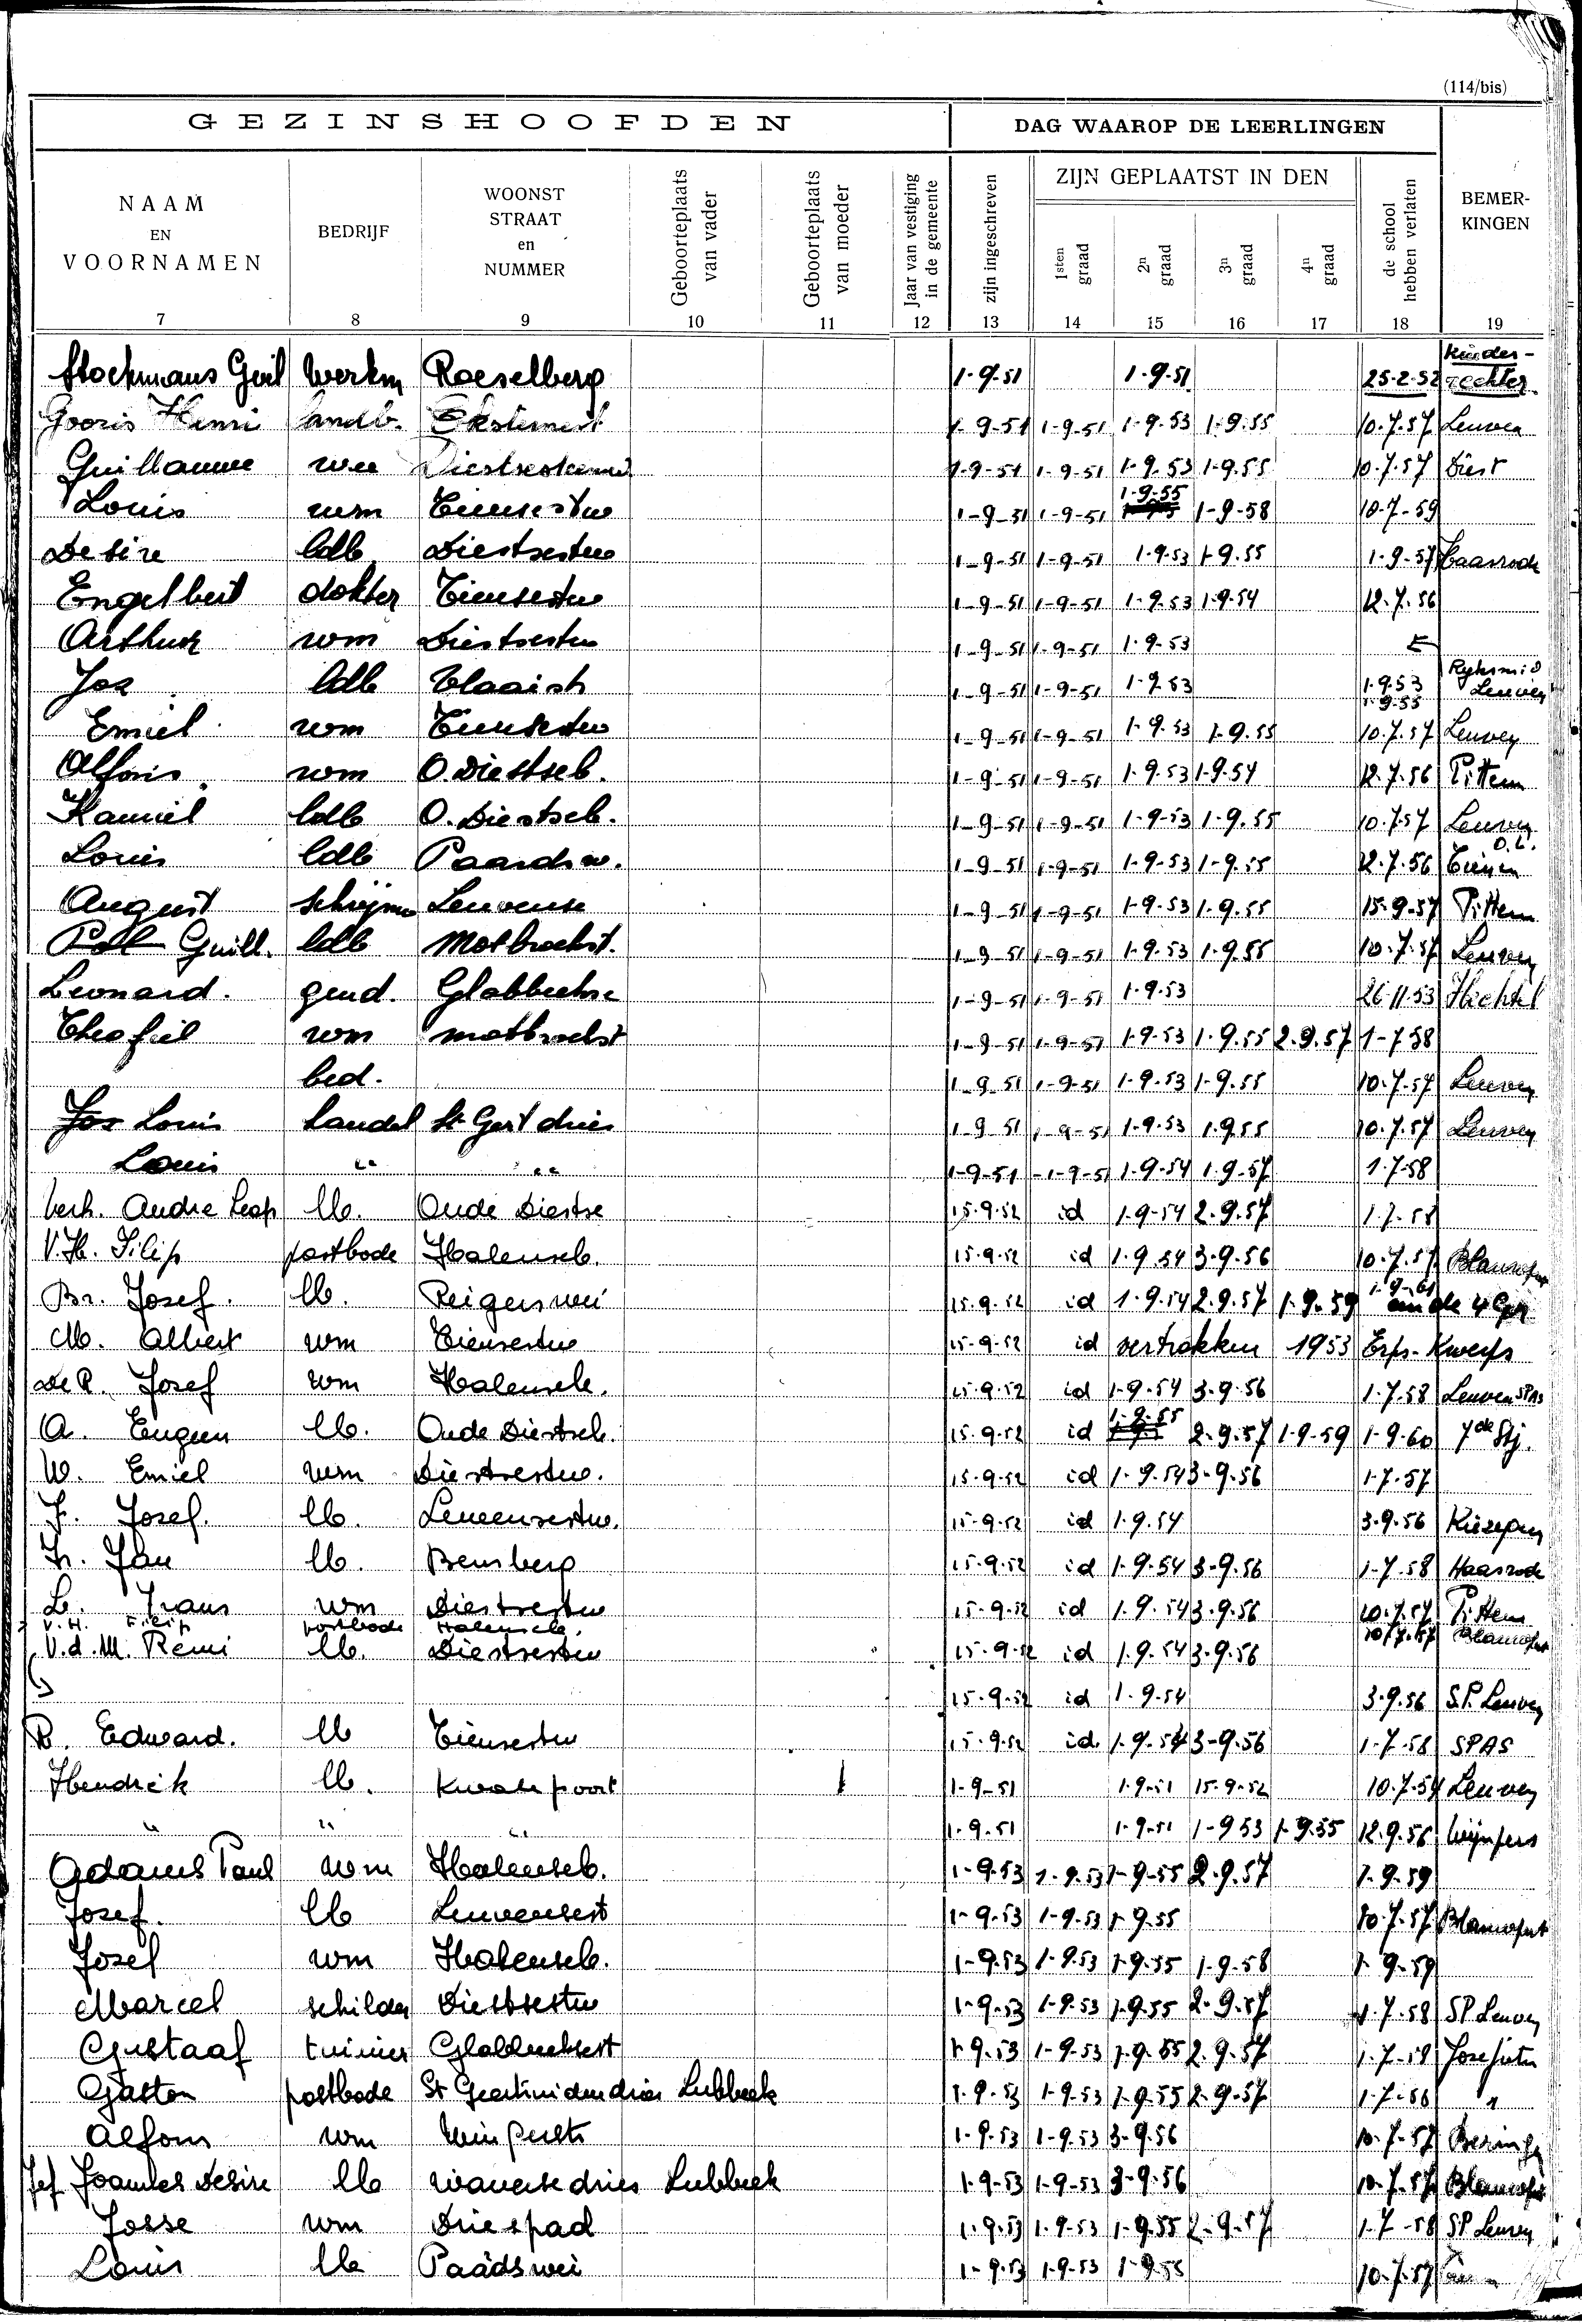 (114/bis)
GEZINSHOOFDEN
DAG WAAROP DE LEERLINGEN
NAAM EN VOORNAMEN
BEDRIJF
WOONST STRAAT en NUMMER
Geboorteplaats van vader
Geboorteplaats van moeder
Jaar van vestiging in de gemeente
zijn ingeschreven
ZIJN GEPLAATST IN DEN
1sten graad
2n graad
3n graad
4n graad
de school hebben verlaten
BEMER-KINGEN
7 8 9 10 11 12 13 14 15 16 17 18 19
Stockmans Guil werkm Roeselberg 1-9-51 1-9-51 25-2-52 Kinder-rechter
Gooris Henri landb. 1-9-51 1-9-51 1-9-53 1-9-55 10-7-57 Leuven
Guillaume 1-9-51 1-9-51 1-9-53 1-9-55 10-7-57 Diest
Louis wm Tiensestw 1-9-51 1-9-51 1-9-55 1-9-58 10-7-59
Desire ldb Diestsestw 1-9-51 1-9-51 1-9-53 1-9-55 1-9-57 Haasrode
Engelbert dokter Tiensestw 1-9-51 1-9-51 1-9-53 1-9-54 12-7-56
Arthur wm Diestsestw 1-9-51 1-9-51 1-9-53
Jos ldb 1-9-51 1-9-51 1-9-53 1-9-53 1-9-53 Leuven
Emiel wm Tiensestw 1-9-51 1-9-51 1-9-53 1-9-55 10-7-57 Leuven
Alfons wm O.Diestseb. 1-9-51 1-9-51 1-9-53 1-9-54 12-7-56 Pittem
Kamiel ldb O.Diestseb. 1-9-51 1-9-51 1-9-53 1-9-55 10-7-57 Leuven
Louis ldb Paardsw. 1-9-51 1-9-51 1-9-53 1-9-55 12-7-56 O.L. Tienen
August schrijnw Leuvense 1-9-51 1-9-51 1-9-53 1-9-55 15-9-57 Pittem
Guill. ldb Motbroekst. 1-9-51 1-9-51 1-9-53 1-9-55 10-7-57 Leuven
Leonard. gend. Glabbeekse 1-9-51 1-9-51 1-9-53 26-11-53 Hechtel
Theofiel wm motbroekst 1-9-51 1-9-57 1-9-53 1-9-55 2-9-57 1-7-58
bed. 1-9-51 1-9-51 1-9-53 1-9-55 10-7-57 Leuven
Jos Louis handel St Gert dries 1-9-51 1-9-51 1-9-53 1-9-55 10-7-57 Leuven
Louis " " 1-9-51 1-9-51 1-9-54 1-9-57 1-7-58
Verh. Andre Leop lb. Oude Diestse 15-9-52 id 1-9-54 2-9-57 1-7-58
V.H. Filip postbode Halenseb. 15-9-52 id 1-9-54 3-9-56 10-7-57 Blauwput
Br. Jozef. lb. Reigerswei 15-9-52 id 1-9-54 2-9-57 1-9-59 1-9-61 de 4 Gr
M. Albert wm Tiensestw 15-9-52 id vertrokken 1953 Erps-Kwerps
De R. Jozef wm Halenseb. 15-9-52 id 1-9-54 3-9-56 1-7-58 Leuven SPAS
A. Eugeen lb. Oude Diestseb. 15-9-52 id 1-9-55 2-9-57 1-9-59 1-9-60 7de Stj.
W. Emiel wm Diestsestw. 15-9-52 id 1-9-54 3-9-56 1-7-57
F. Jozef. lb. Leuvensestw. 15-9-52 id 1-9-54 3-9-56 Kiezegem
Fr. Jan lb. Bensberg 15-9-52 id 1-9-54 3-9-56 1-7-58 Haasrode
L. Frans wm Diestsestw 15-9-52 id 1-9-54 3-9-56 10-7-57 Pittem
V.H. Filip postbode Halenseb. 10-7-57 Blauwput
V.d.M. Remi lb. Diestsestw 15-9-52 id 1-9-54 3-9-56
15-9-52 id 1-9-54 3-9-56 S.P. Leuven
R. Edward. lb Tiensestw 15-9-52 id 1-9-54 3-9-56 1-7-58 SPAS
Hendrik lb. Kwade poort 1-9-51 1-9-51 15-9-52 10-7-54 Leuven
" " " 1-9-51 1-9-51 1-9-53 1-9-55 12-9-56 Wijnpers
Adams Paul wm Halenseb. 1-9-53 1-9-53 1-9-55 2-9-57 1-9-59
Jozef. lb Leuvensest 1-9-53 1-9-53 1-9-55 10-7-57 Blauwput
Jozef wm Halenseb. 1-9-53 1-9-53 1-9-55 1-9-58 1-9-59
Marcel schilder Diestsestw 1-9-53 1-9-53 1-9-55 2-9-57 1-7-58 SP Leuven
Gustaaf tuinier Glabbeeksest 1-9-53 1-9-53 1-9-55 2-9-57 1-7-59 Josefieten
Gaston postbode St Geertruidendries Lubbeek 1-9-53 1-9-53 1-9-55 2-9-57 1-7-58 "
Alfons wm 1-9-53 1-9-53 3-9-56 10-7-57 Beringen
Jef Joannes Desire lb Waversedries Lubbeek 1-9-53 1-9-53 3-9-56 10-7-57 Blauwput
Josse wm Driespad 1-9-53 1-9-53 1-9-55 2-9-57 1-7-58 SP Leuven
Louis lb Paadswei 1-9-53 1-9-53 1-9-55 10-7-57